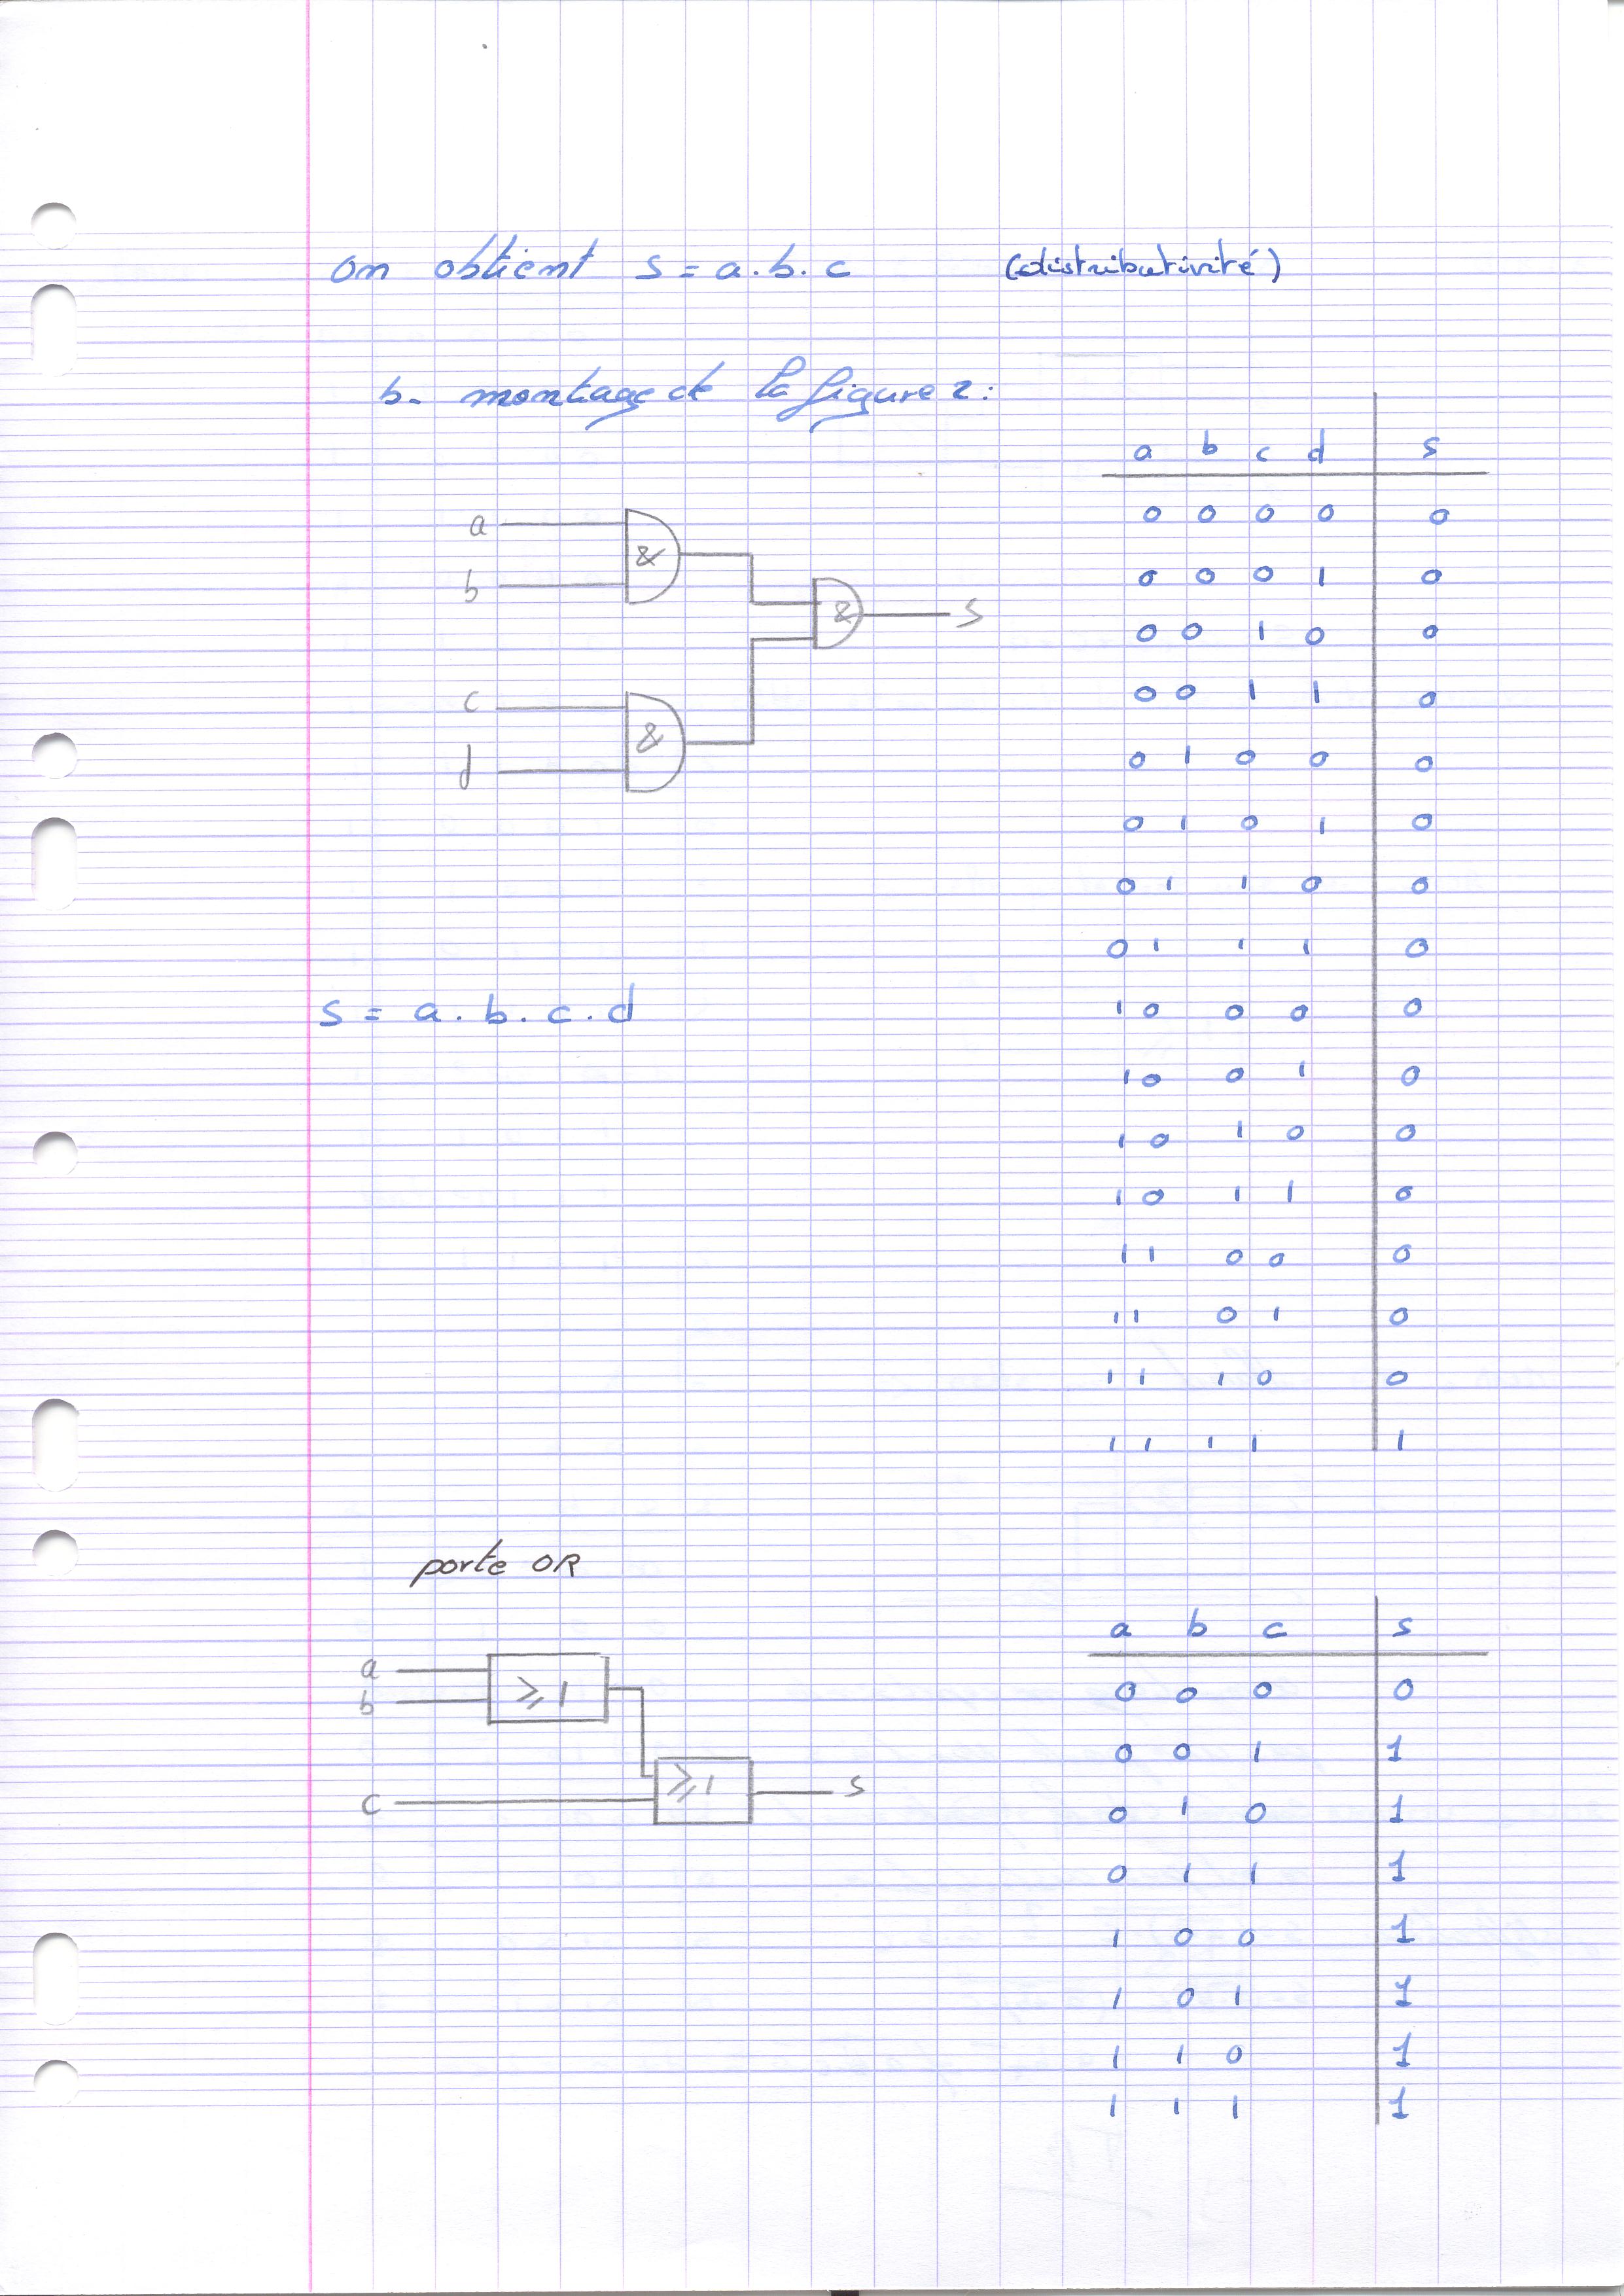 on obtient s = a.b.c (distributivité)
b. montage de la figure 2:
a b c d s
0 0 0 0 0
0 0 0 1 0
0 0 1 0 0
0 0 1 1 0
0 1 0 0 0
0 1 0 1 0
0 1 1 0 0
0 1 1 1 0
1 0 0 0 0
1 0 0 1 0
1 0 1 0 0
1 0 1 1 0
1 1 0 0 0
1 1 0 1 0
1 1 1 0 0
1 1 1 1 1
a
&
b
& s
c
&
d
s = a.b.c.d
porte OR
a
b
≥1
c
≥1 s
a b c s
0 0 0 0
0 0 1 1
0 1 0 1
0 1 1 1
1 0 0 1
1 0 1 1
1 1 0 1
1 1 1 1